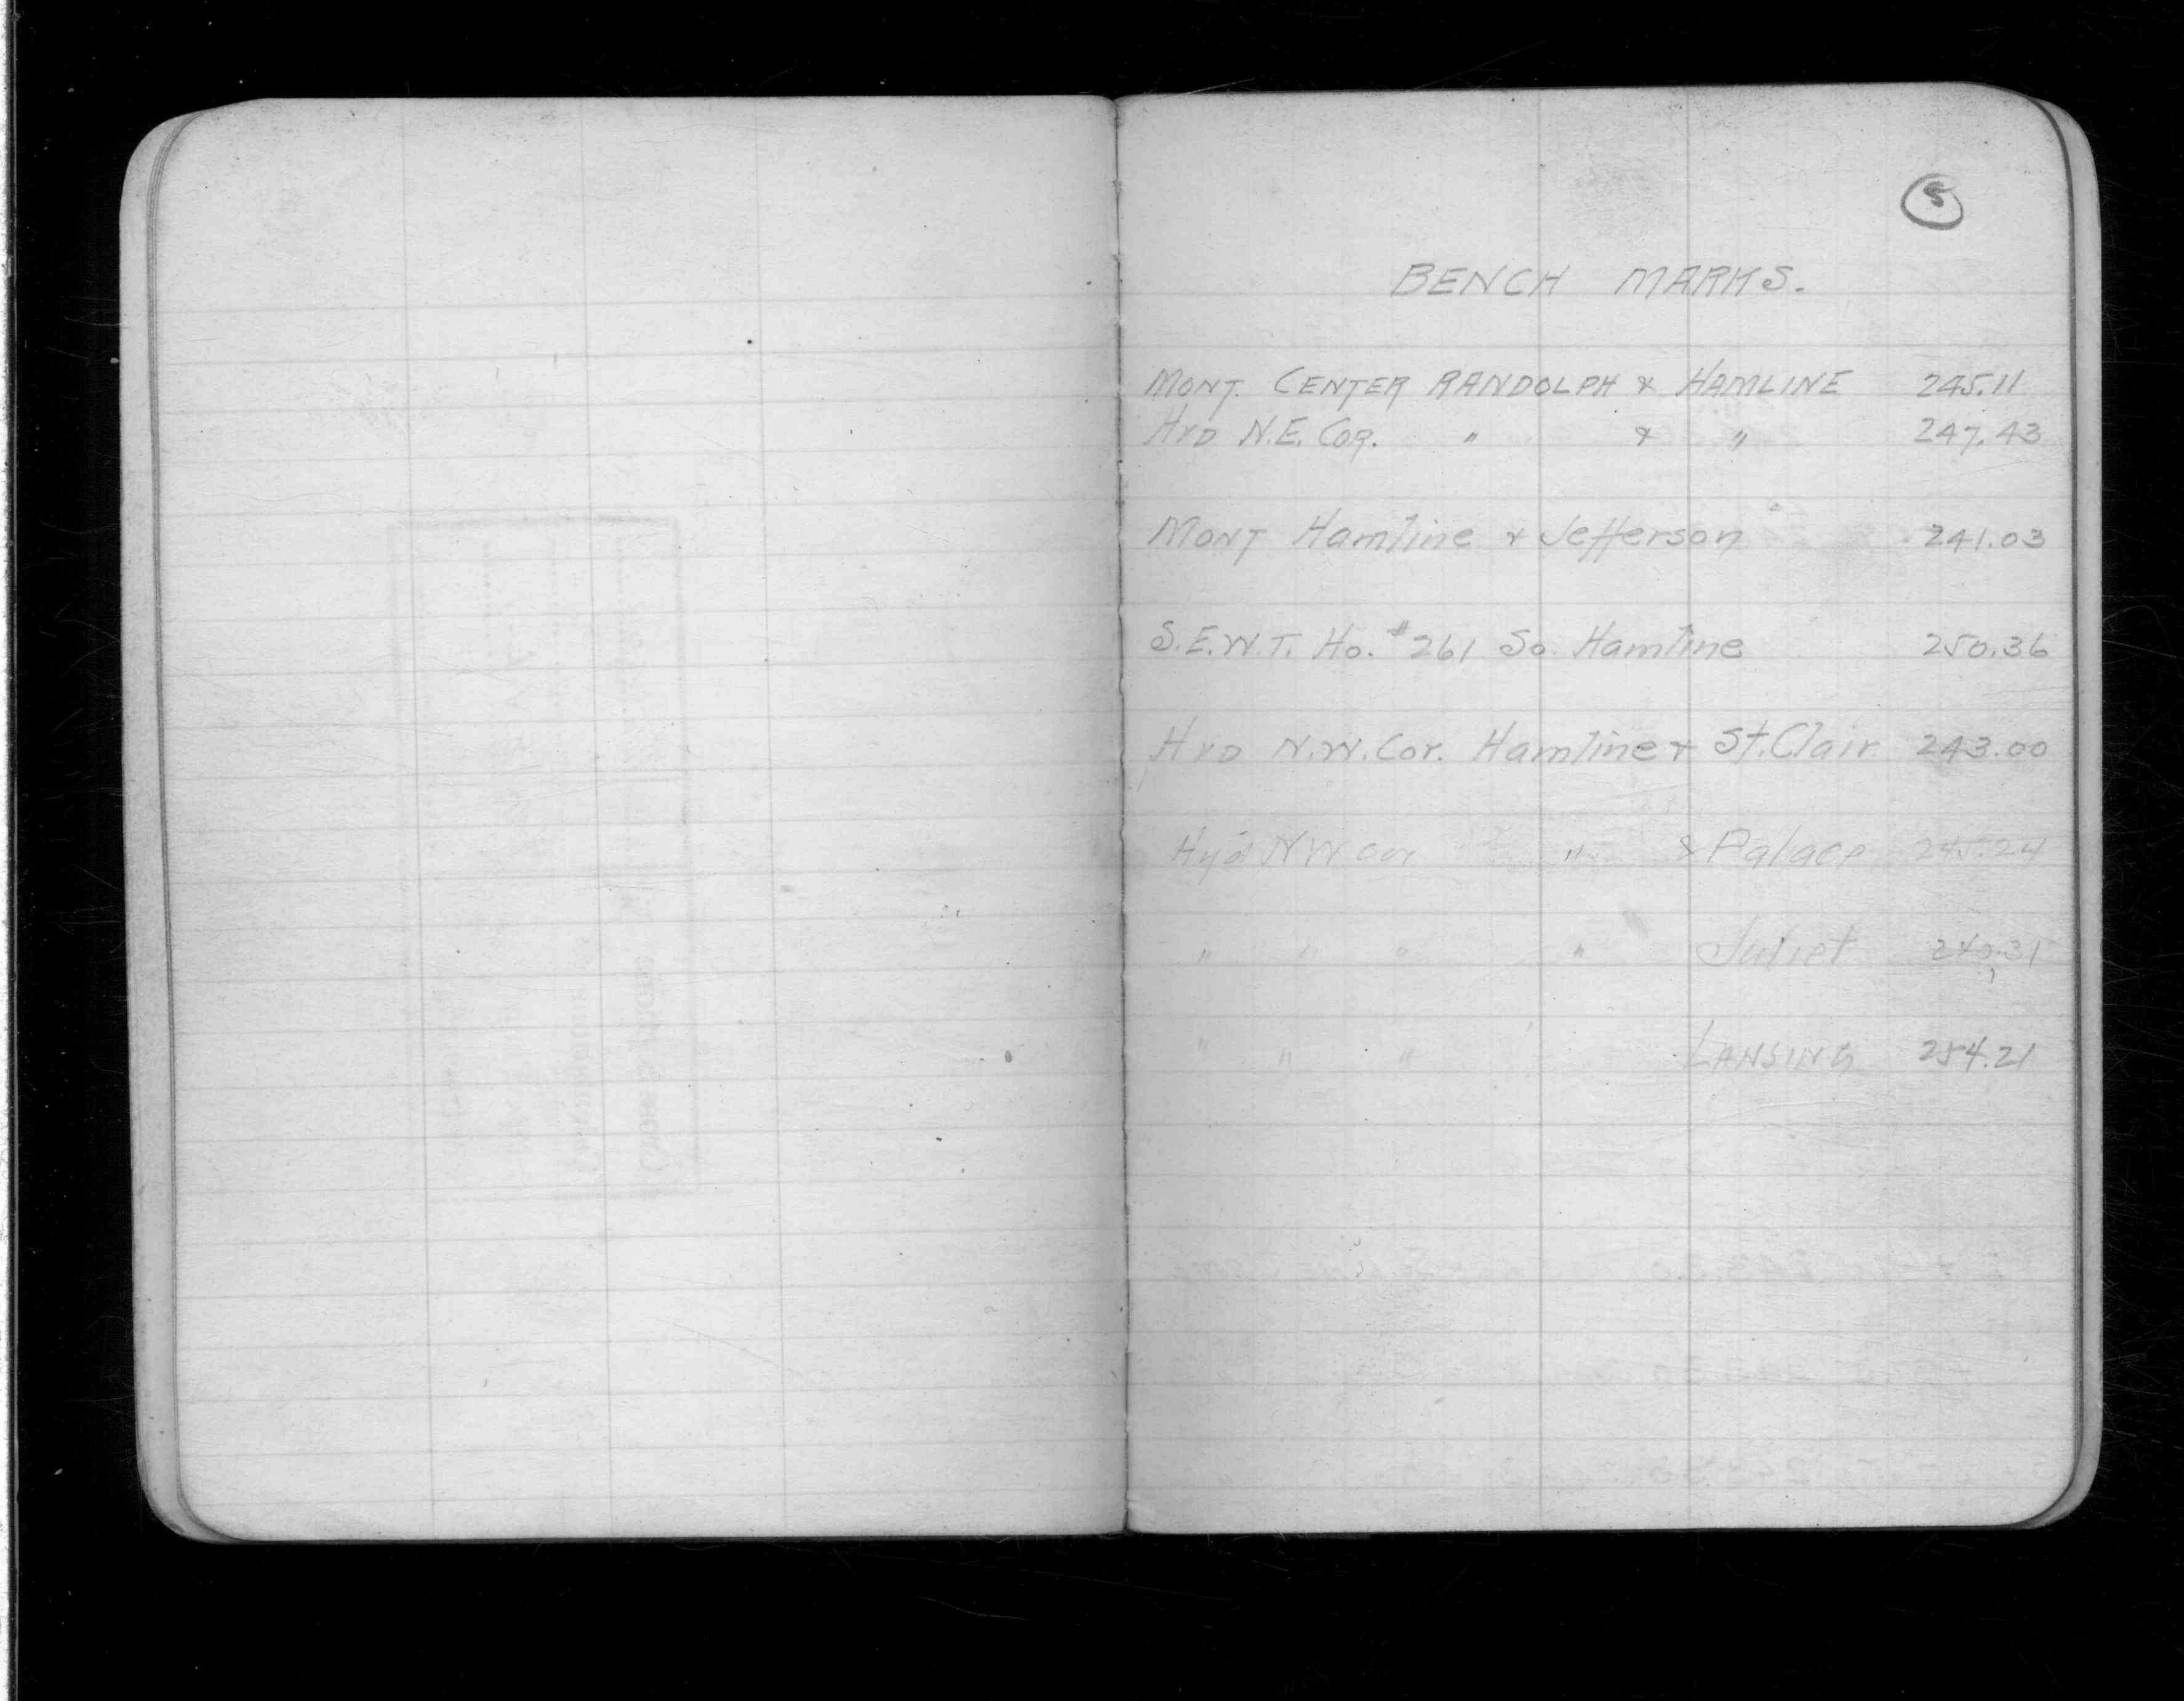 5
BENCH MARKS.
MONT. CENTER RANDOLPH & HAMLINE 245.11
HYD N.E. COR. " & " 247.43
MONT Hamline & Jefferson 241.03
S.E.W.T. Ho. #261 So. Hamline 250.36
HYD N.W. Cor. Hamline & St. Clair 243.00
Hyd NW cor " & Palace 245.24
" " " " Juliet 240.31
" " " LANSING 254.21